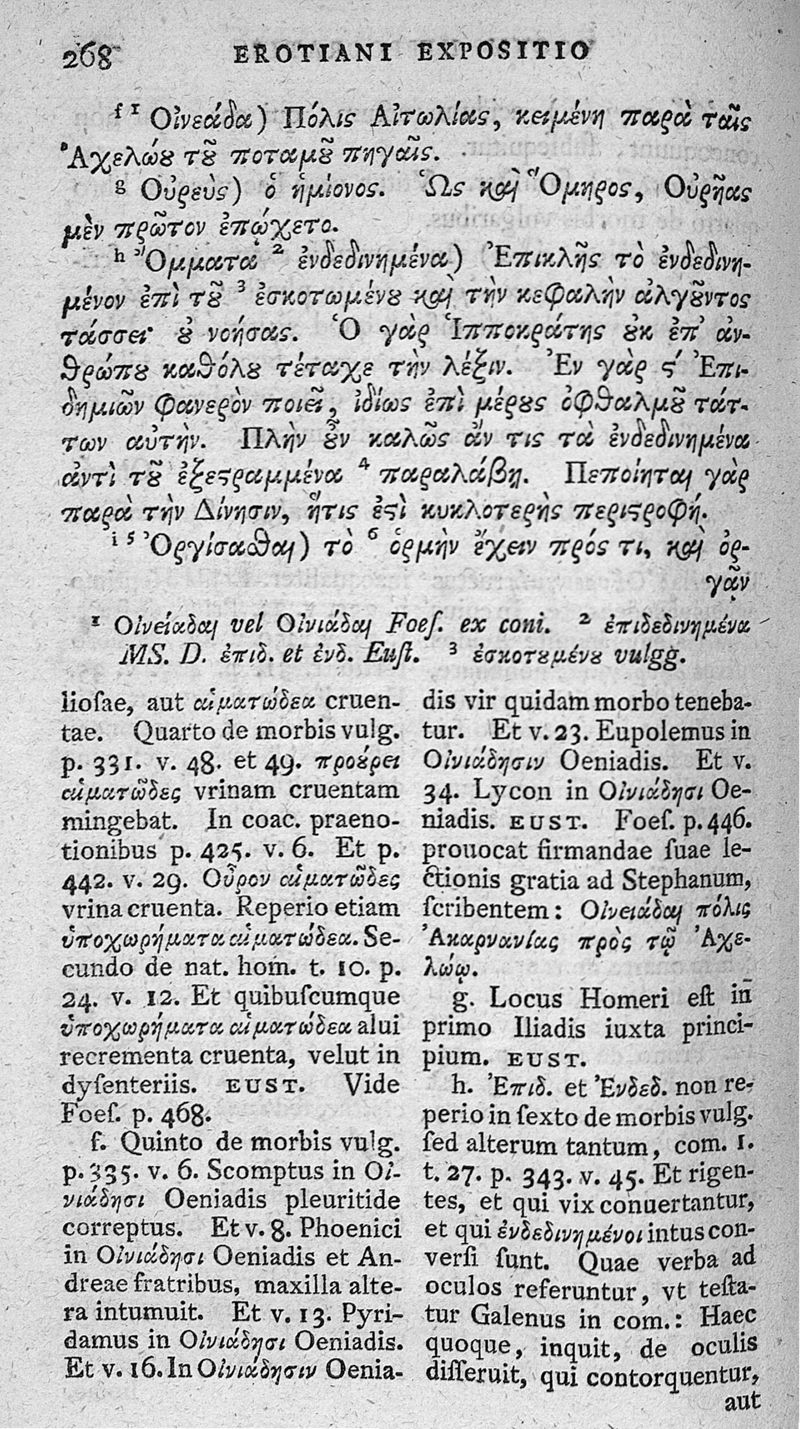 268 EROTIANI EXPOSITIO
f 1 Οἰνεάδα) Πόλις Αἰτωλίας, κειμένη παρὰ ταῖς
Ἀχελώȣ τȣ͂ ποταμȣ͂ πηγαῖς.
g Οὐρεὺς) ὁ ἡμίονος. Ὡς καὶ Ὅμηρος, Οὐρῆας
μὲν πρῶτον ἐπῴχετο.
h Ὄμματα 2 ἐνδεδινημένα) Ἐπικλῆς τὸ ἐνδεδινη-
μένον ἐπὶ τȣ͂ 3 ἐσκοτωμένȣ καὶ τὴν κεφαλὴν ἀλγȣ͂ντος
τάσσει· ȣ̓ νοήσας. Ὁ γὰρ Ἱπποκράτης ȣ̓κ ἐπ' ἀν-
θρώπȣ καθόλȣ τέταχε τὴν λέξιν. Ἐν γὰρ ϛ΄ Ἐπι-
δημιῶν φανερὸν ποιεῖ, ἰδίως ἐπὶ μέρȣς ὀφθαλμȣ͂ τάτ-
των αὐτήν. Πλὴν ȣ̓͂ν καλῶς ἄν τις τὰ ἐνδεδινημένα
ἀντὶ τȣ͂ ἐξεϛραμμένα 4 παραλάβῃ. Πεποίηται γὰρ
παρὰ τὴν Δίνησιν, ἥτις ἐϛὶ κυκλοτερὴς περιϛροφή.
i 5 Ὀργίσασθαι) τὸ 6 ὁρμὴν ἔχειν πρός τι, καὶ ὀρ-
γᾷν
1 Οἰνείαδαι vel Οἰνιάδαι Foeſ. ex coni. 2 ἐπιδεδινημένα
MS. D. ἐπιδ. et ἐνδ. Euſt. 3 ἐσκοτȣμένȣ vulgg.
lioſae, aut αἱματώδεα cruen-
tae. Quarto de morbis vulg.
p. 331. v. 48. et 49. προȣ́ρει
αἱματῶδες vrinam cruentam
mingebat. In coac. praeno-
tionibus p. 425. v. 6. Et p.
442. v. 29. Οὖρον αἱματῶδες
vrina cruenta. Reperio etiam
ὑποχωρήματα αἱματώδεα. Se-
cundo de nat. hom. t. 10. p.
24. v. 12. Et quibuſcumque
ὑποχωρήματα αἱματώδεα alui
recrementa cruenta, velut in
dyſenteriis. EUST. Vide
Foeſ. p. 468.
f. Quinto de morbis vulg.
p. 335. v. 6. Scomptus in Οἰ-
νιάδησι Oeniadis pleuritide
correptus. Et v. 8. Phoenici
in Οἰνιάδησι Oeniadis et An-
dreae fratribus, maxilla alte-
ra intumuit. Et v. 13. Pyri-
damus in Οἰνιάδησι Oeniadis.
Et v. 16. In Οἰνιάδησιν Oenia-
dis vir quidam morbo teneba-
tur. Et v. 23. Eupolemus in
Οἰνιάδησιν Oeniadis. Et v.
34. Lycon in Οἰνιάδησι Oe-
niadis. EUST. Foeſ. p. 446.
prouocat firmandae ſuae le-
ctionis gratia ad Stephanum,
ſcribentem: Οἰνειάδαι πόλις
Ἀκαρνανίας πρὸς τῷ Ἀχε-
λώῳ.
g. Locus Homeri eſt in
primo Iliadis iuxta princi-
pium. EUST.
h. Ἐπιδ. et Ἐνδεδ. non re-
perio in ſexto de morbis vulg.
ſed alterum tantum, com. 1.
t. 27. p. 343. v. 45. Et rigen-
tes, et qui vix conuertantur,
et qui ἐνδεδινημένοι intus con-
verſi ſunt. Quae verba ad
oculos referuntur, vt teſta-
tur Galenus in com.: Haec
quoque, inquit, de oculis
diſſeruit, qui contorquentur,
aut